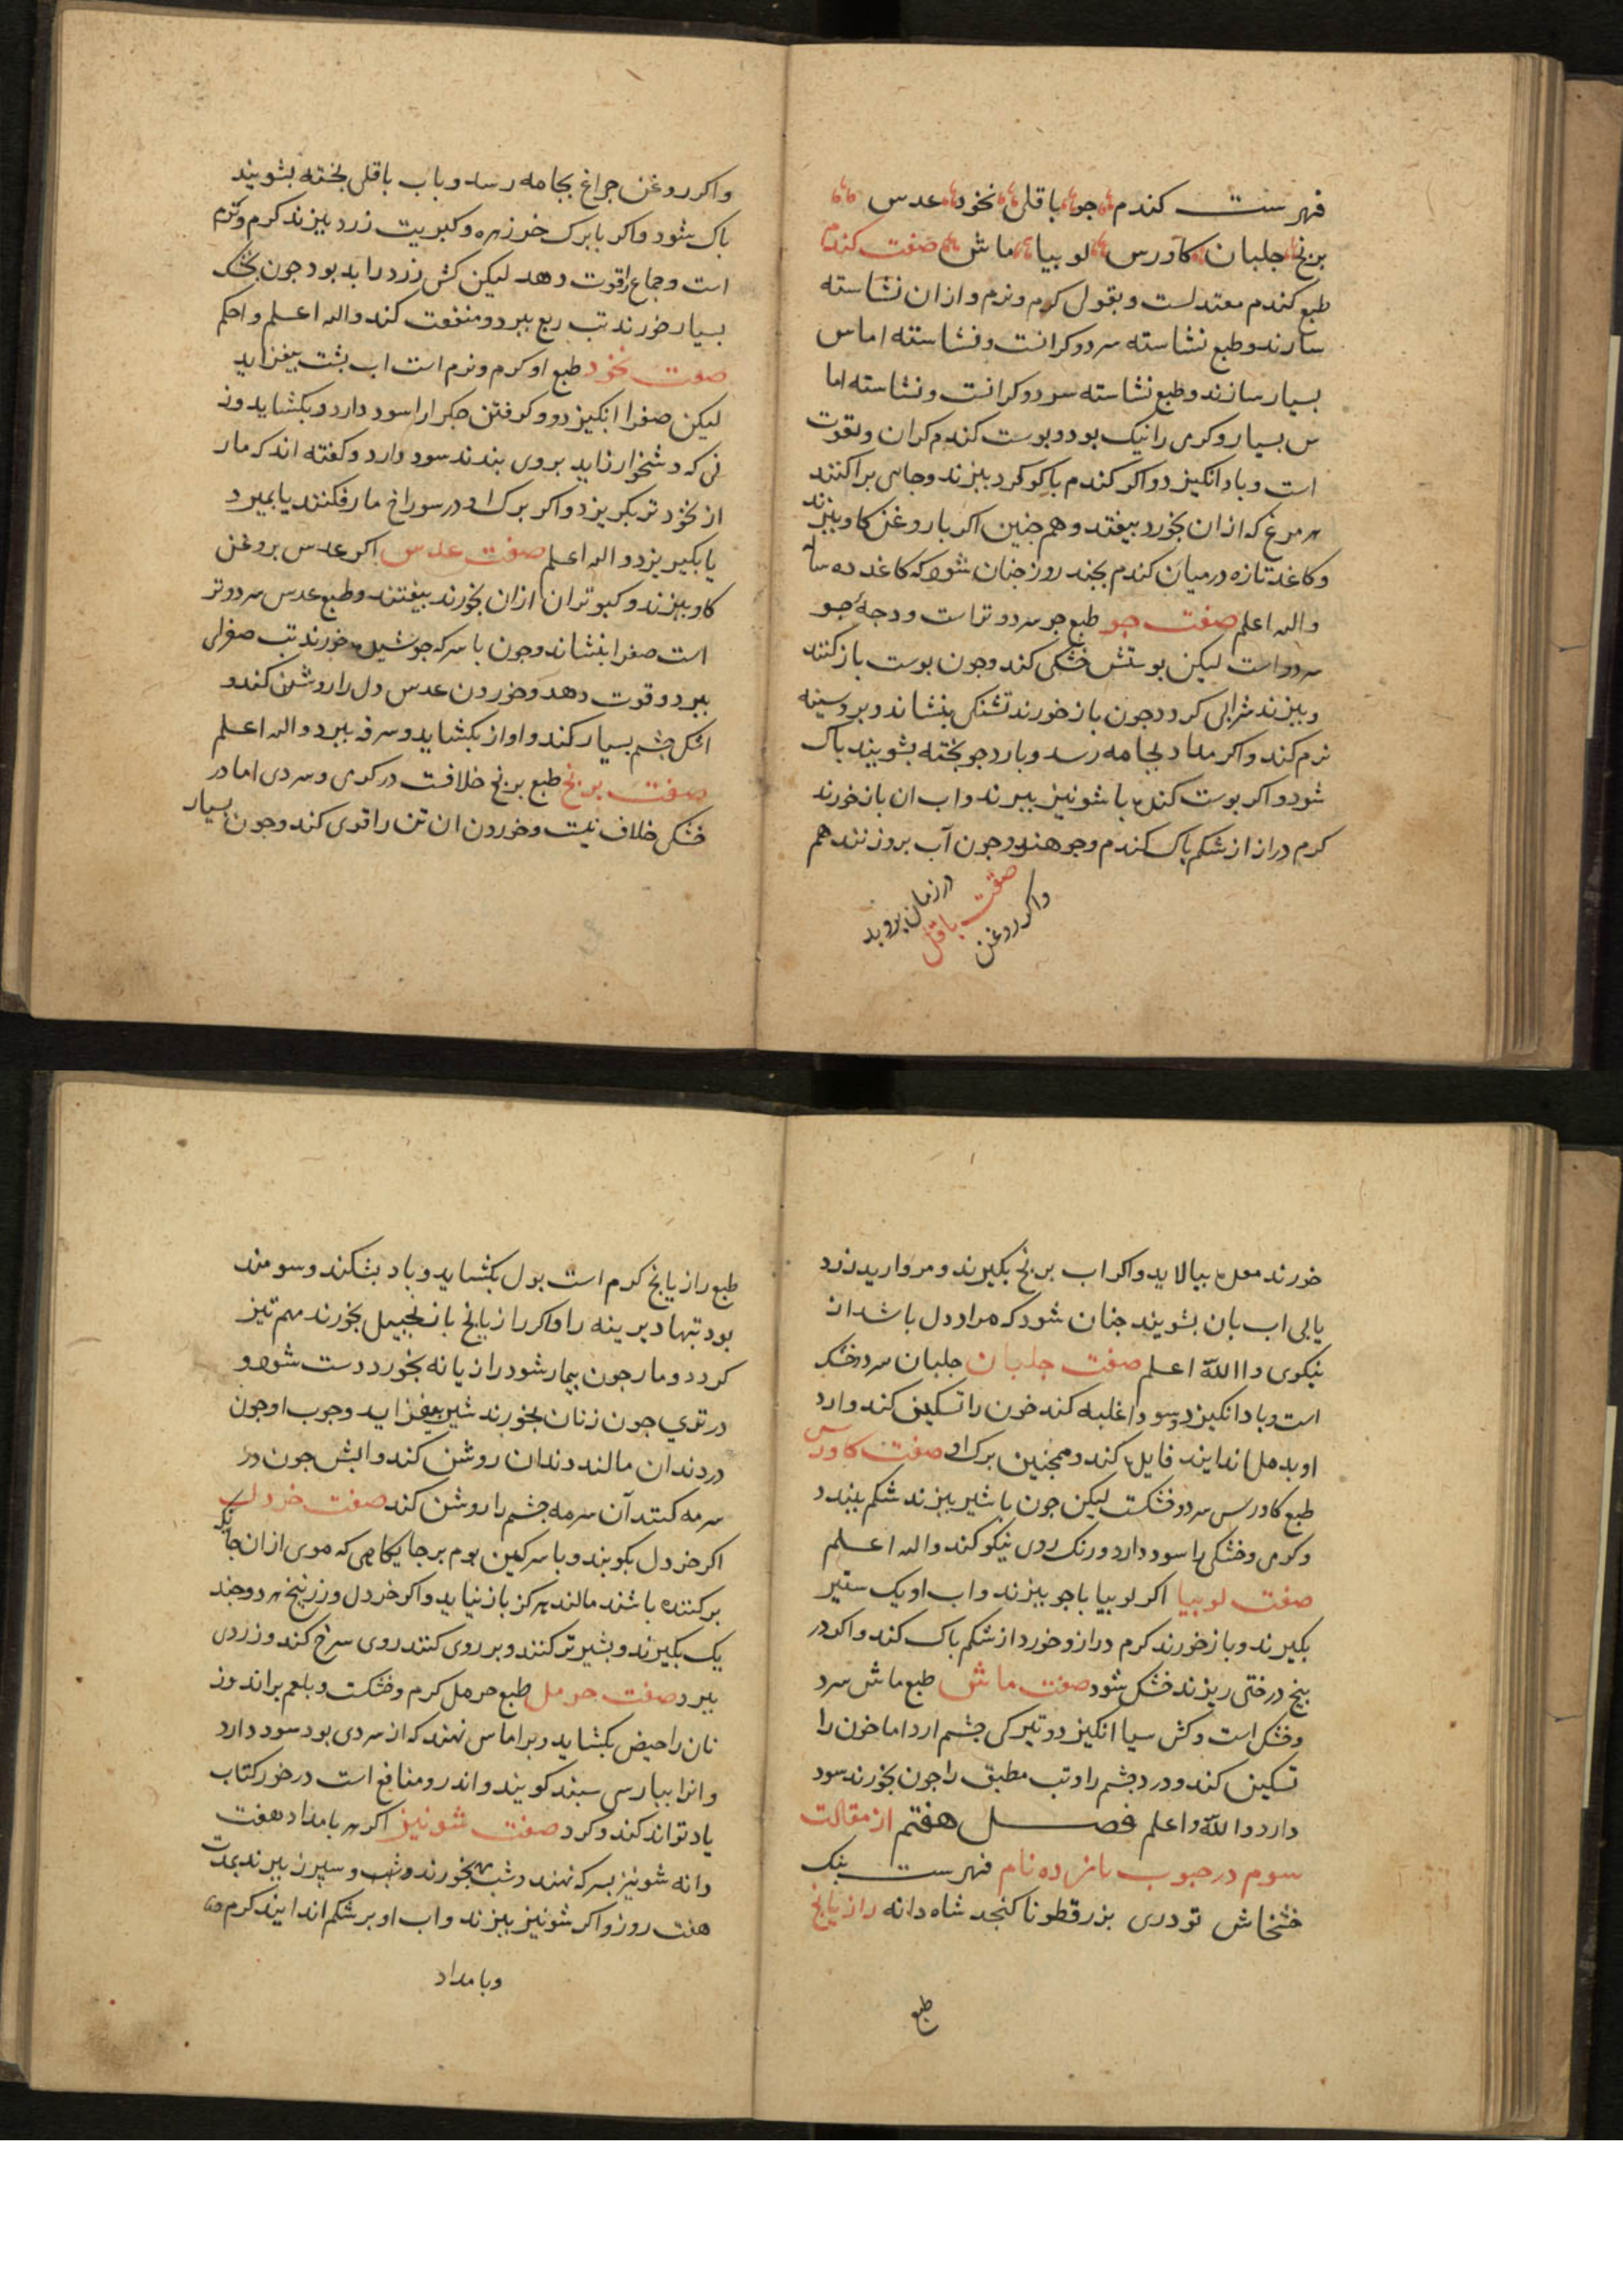 فهرست کندم جو باقلی نخود عدس
برنج جلبان کاورس لوبیا ماش صفت کندم
طبع کندم معتدلست وبقول کرم ونرم وازان نشاسته
سارند وطبع نشاسته سردوکرانست ونشاسته اماس
بسیار سازند وطبع نشاسته سردوکرانست ونشاسته اما
س بسیار وکرمی رانیک بود وبوست کندم کران وبقوت
است وباد انکیزد واکر کندم باکوکرد ببزند وجاهی براکنند
هر مرغ که ازان بخورد بیفتد وهم جنین اکر باروغن کاو ببزند
وکاغد تازه درمیان کندم بجند روز جنان شود که کاغد ده ساله
والله اعلم صفت جو طبع جو سردوتر است ودرجهٔ جو
سرد است لیکن بوستش خشکی کند وجون بوست باز کنند
وببزند شرابی کردد جون باز خورند تشنکی بنشاند وبر وسینه
نرم کند واکر مداد بجامه رسد وبارد جو بخته بشویند باک
شود واکر بوست کنده با شونیز ببرند واب ان بازخورند
کرم دراز از شکم باک کندم وجو هندو وجون آب بروزنند هم
درزمان بروید
صفت باقلی
واکر روغن
واکر روغن جراغ بجامه رسد وباب باقلی بخته بشویند
باک شود واکر بابرک خرزهره وکبریت زرد ببزند کرم ونرم
است وجماع راقوت دهد لیکن کش زرد را بد بود جون بخشک
بسیار خورند تب ربع ببرد ومنفعت کند والله اعلم واحکم
صفت نخود طبع او کرم ونرم است اب بشت بیفزاید
لیکن صفرا انکیزد وکرفتن جکر را سود دارد وبکشاید وز
نی که دشخوار زاید بروی بندند سود دارد وکفته اند که مار
از نخود تر بکریزد واکر برک او در سوراخ مار فکنند یا بمیرد
یا بکیریزد والله اعلم صفت عدس اکر عدس بروغن
کاو ببزند وکبوتران ازان بخورند بیفتند وطبع عدس سردوتر
است صفرا بنشاند وجون باسرکه جوشیده خورند تب صفرای
ببرد وقوت دهد وخوردن عدس دل را روشن کند و
اشک جشم بسیار کند واواز بکشاید وسرفه ببرد والله اعلم
صفت برنج طبع برنج خلافست در کرمی وسردی اما در
خشکی خلاف نیست وخوردن ان تن را قوی کند وجون بسیار
خورند معده بیالاید واکر اب برنج بکیرند ومروارید زرد
یابی اب بان بشویند جنان شود که مراد دل باشد از
نیکوی واالله اعلم صفت جلبان جلبان سردوخشک
است وباد انکیزد وسودا غلبه کند خون را تسکین کند وارد
او بدمل اندایند فایده کند وهمجنین برک او صفت کاورس
طبع کاورس سردوخشکست لیکن جون باشیر ببزند شکم ببندد
وکرمی وخشکی را سود دارد ورنک روی نیکو کند والله اعلم
صفت لوبیا اکر لوبیا باجو ببزند واب او یک ستیر
بکیرند وباز خورند کرم دراز وخورد از شکم باک کند واکر در
بیخ درختی ریزند خشک شود صفت ماش طبع ماش سرد
وخشک است وکش سیا انکیزد وتیرکی جشم ارد اما خون را
تسکین کند ودرد جشم را وتب مطبق را جون بخورند سود
دارد واللّه واعلم فصل هفتم از مقالت
سوم در حبوب بانزده نام فهرست بنک
خشخاش تودری بزرقطونا کنجد شاه دانه رازیانج
طبع
طبع رازیانج کرم است بول بکشاید وباد بشکند وسومند
بود تبهاء دیرینه را واکر رازیانج بازنجبیل بخورند مهم تیز
کردد ومار جون بیمار شود رازیانه بخورد دست شود و
در تری جون زنان بخورند شیر بیفزاید وجوب او جون
دردندان مالند دندان روشن کند وابش جون در
سرمه کنند آن سرمه جشم را روشن کند صفت خردل
اکر خردل بکوبند وباسرکین بوم برجایکاهی که موی ازان جایکه
برکننده باشند مالند هرکز بازنیاید واکر خردل وزرنیخ هردو جند
یک بکیرند وبشیر تر کنند وبر روی کنند روی سرخ کند وزردی
ببرد صفت حرمل طبع حرمل کرم وخشکست وبلغم براند وز
نان را حیض بکشاید وبراماس نهند که از سردی بود سود دارد
وانرا ببارسی سبند کویند واندرو منافع است درخور کتاب
یاد تواند کند وکرد صفت شونیز اکر هر بامداد هفت
دانه شونیز بسرکه نهند وشب بخورند وشب وسبرز ببرند بمدت
هفت روز واکر شونیز ببزند واب او بر شکم اندایند کرم
وبامداد